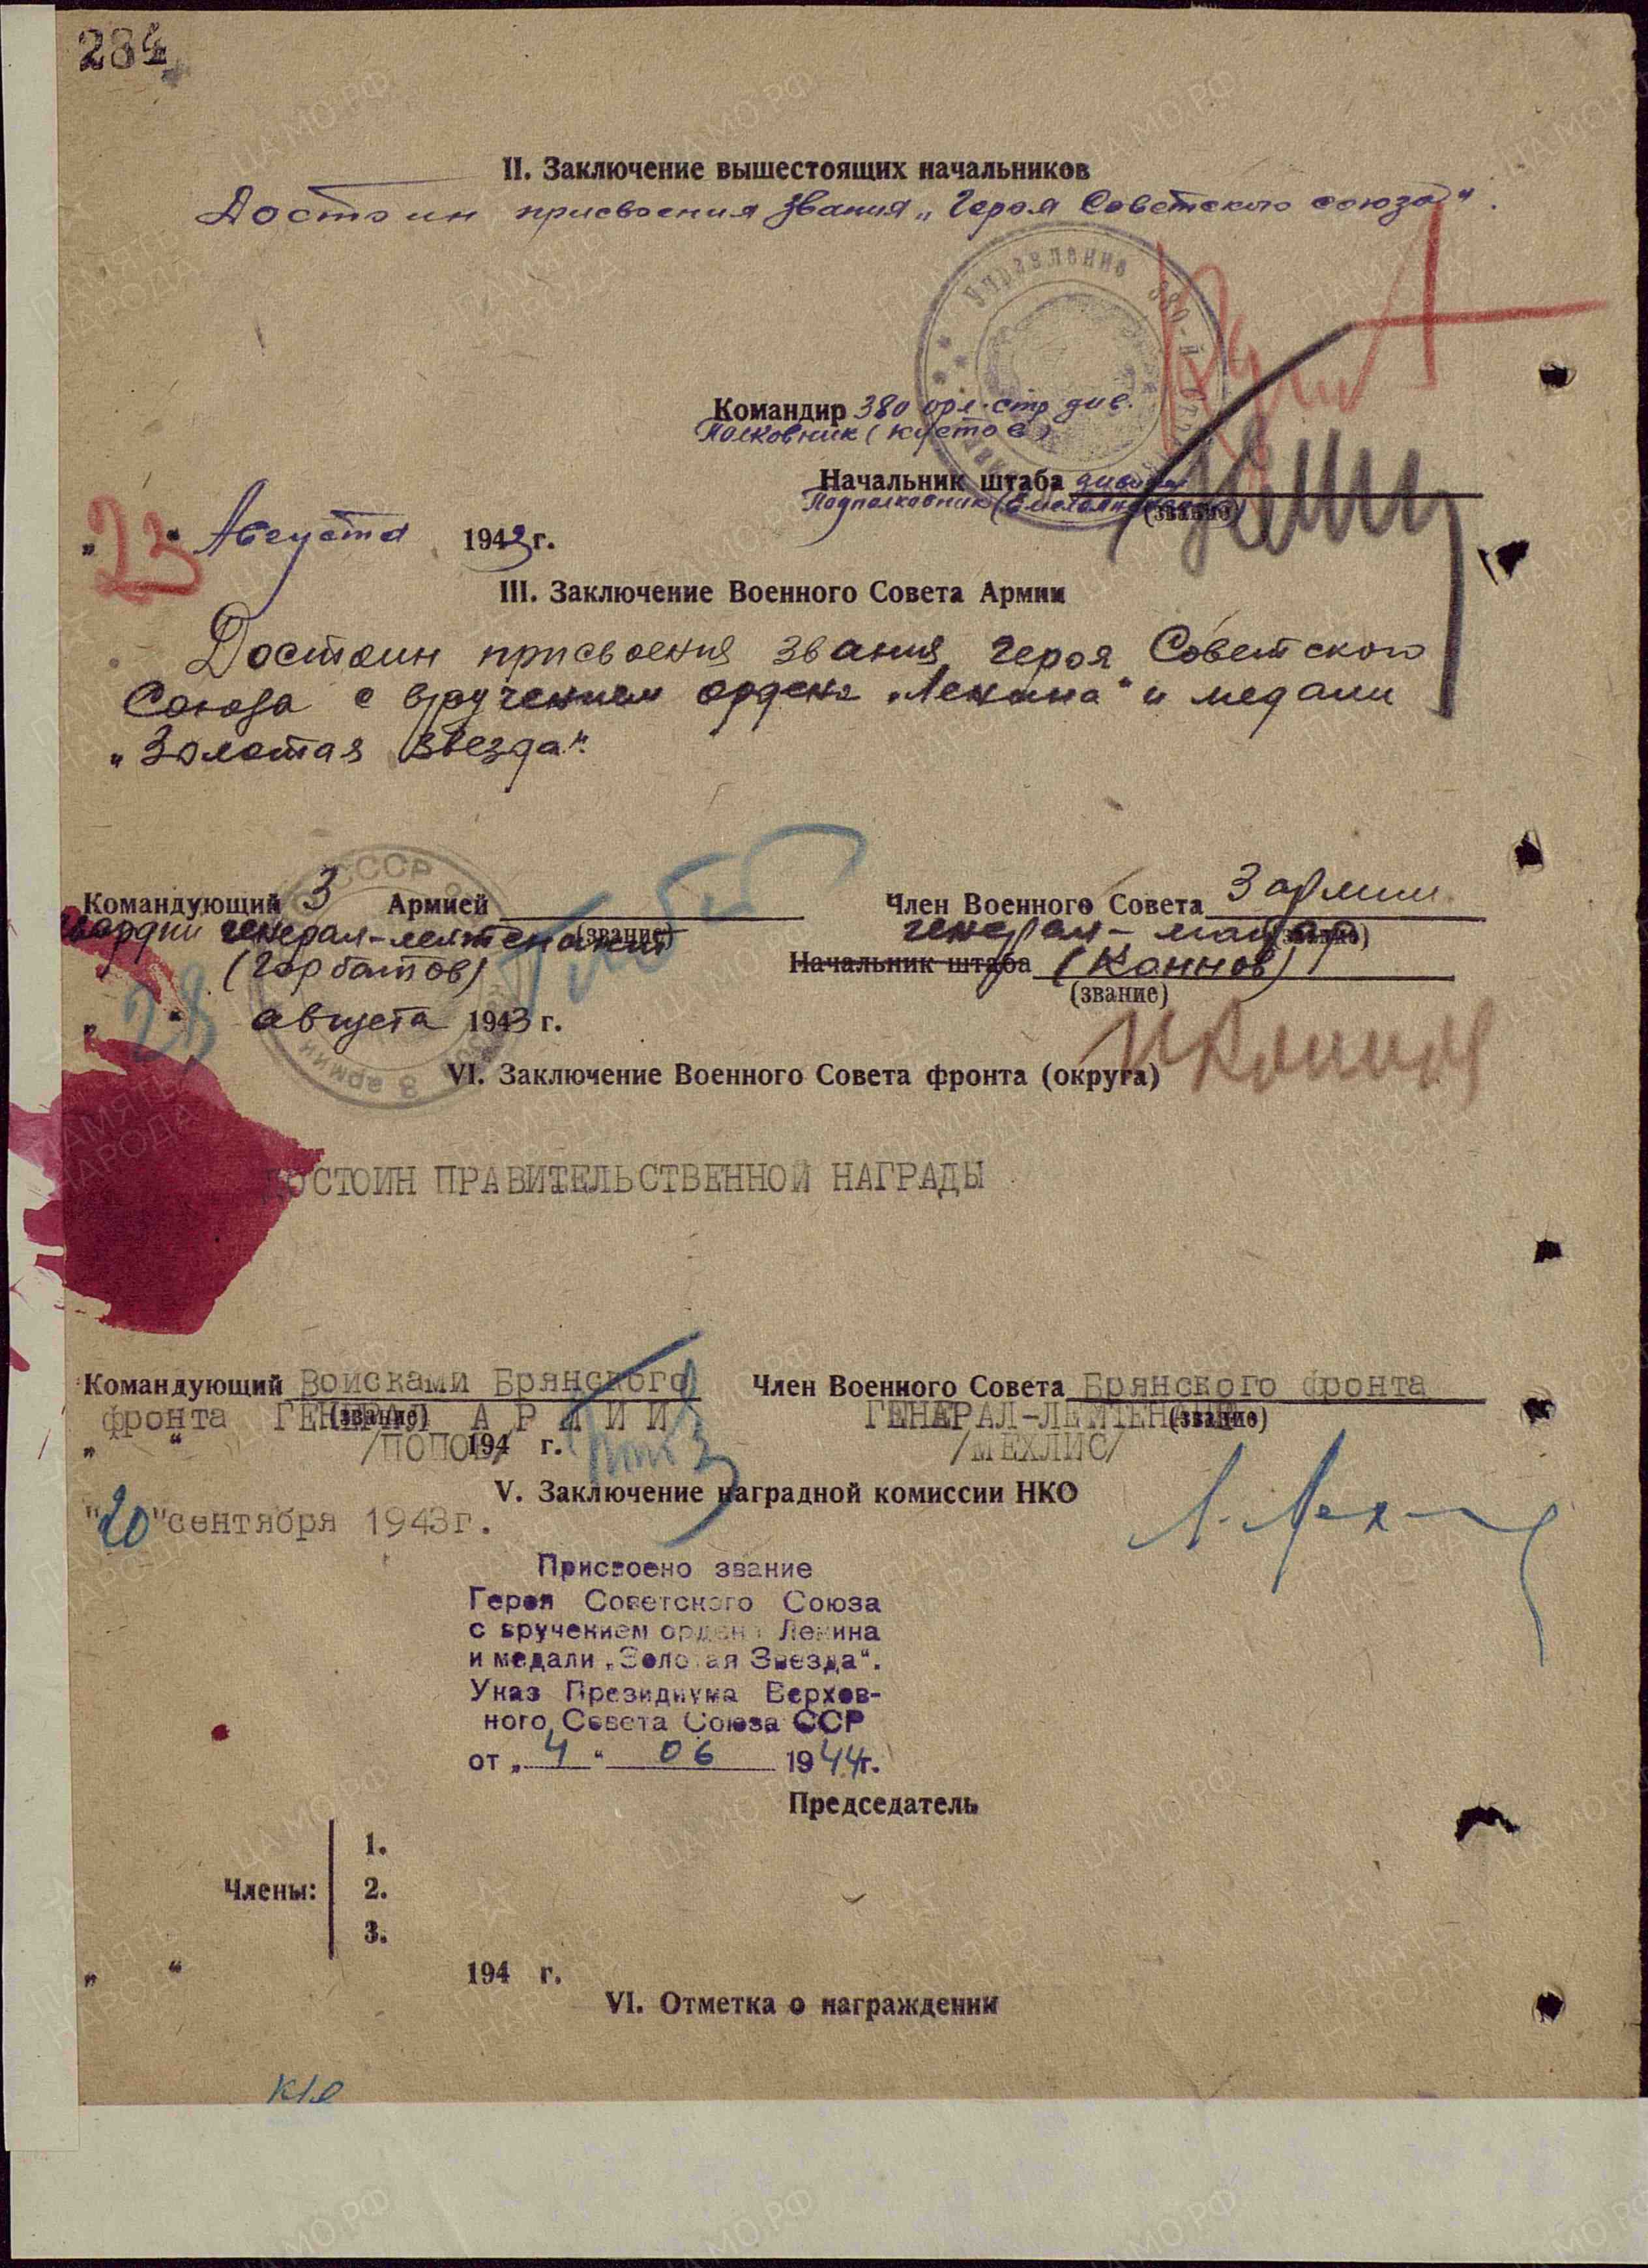 284
II. Заключение вышестоящих начальников
Достоин присвоения звания „Героя Советского союза“.
Управление 380-й
Командир 380 орл. стр див.
Полковник (Кустов)
Начальник штаба дивизии
Подполковник (Емельян
(звание)
„23“ Августа 1943 г.
III. Заключение Военного Совета Армии
Достоин присвоения звания героя Советского
Союза с вручением ордена „Ленина“ и медали
„Золотая Звезда“.
СССР
Командующий 3 Армией
Член Военного Совета 3 армии
гвардии генерал-лейтенант
(звание)
генерал-майор
(звание)
(Горбатов)
Начальник штаба (Коннов)
(звание)
„28“ августа 1943 г.
3 армии
VI. Заключение Военного Совета фронта (округа)
ДОСТОИН ПРАВИТЕЛЬСТВЕННОЙ НАГРАДЫ
Командующий Войсками Брянского
Член Военного Совета Брянского фронта
фронта ГЕНЕРАЛ АРМИИ
(звание)
ГЕНЕРАЛ-ЛЕЙТЕНАНТ
(звание)
„ “ /ПОПОВ/ 194 г.
/МЕХЛИС/
V. Заключение наградной комиссии НКО
"20"сентября 1943г.
Присвоено звание
Героя Советского Союза
с вручением ордена Ленина
и медали „Золотая Звезда“.
Указ Президиума Верхов-
ного Совета Союза ССР
от „4“ 06 1944г.
Председатель
Члены:
1.
2.
3.
„ “ 194 г.
VI. Отметка о награждении